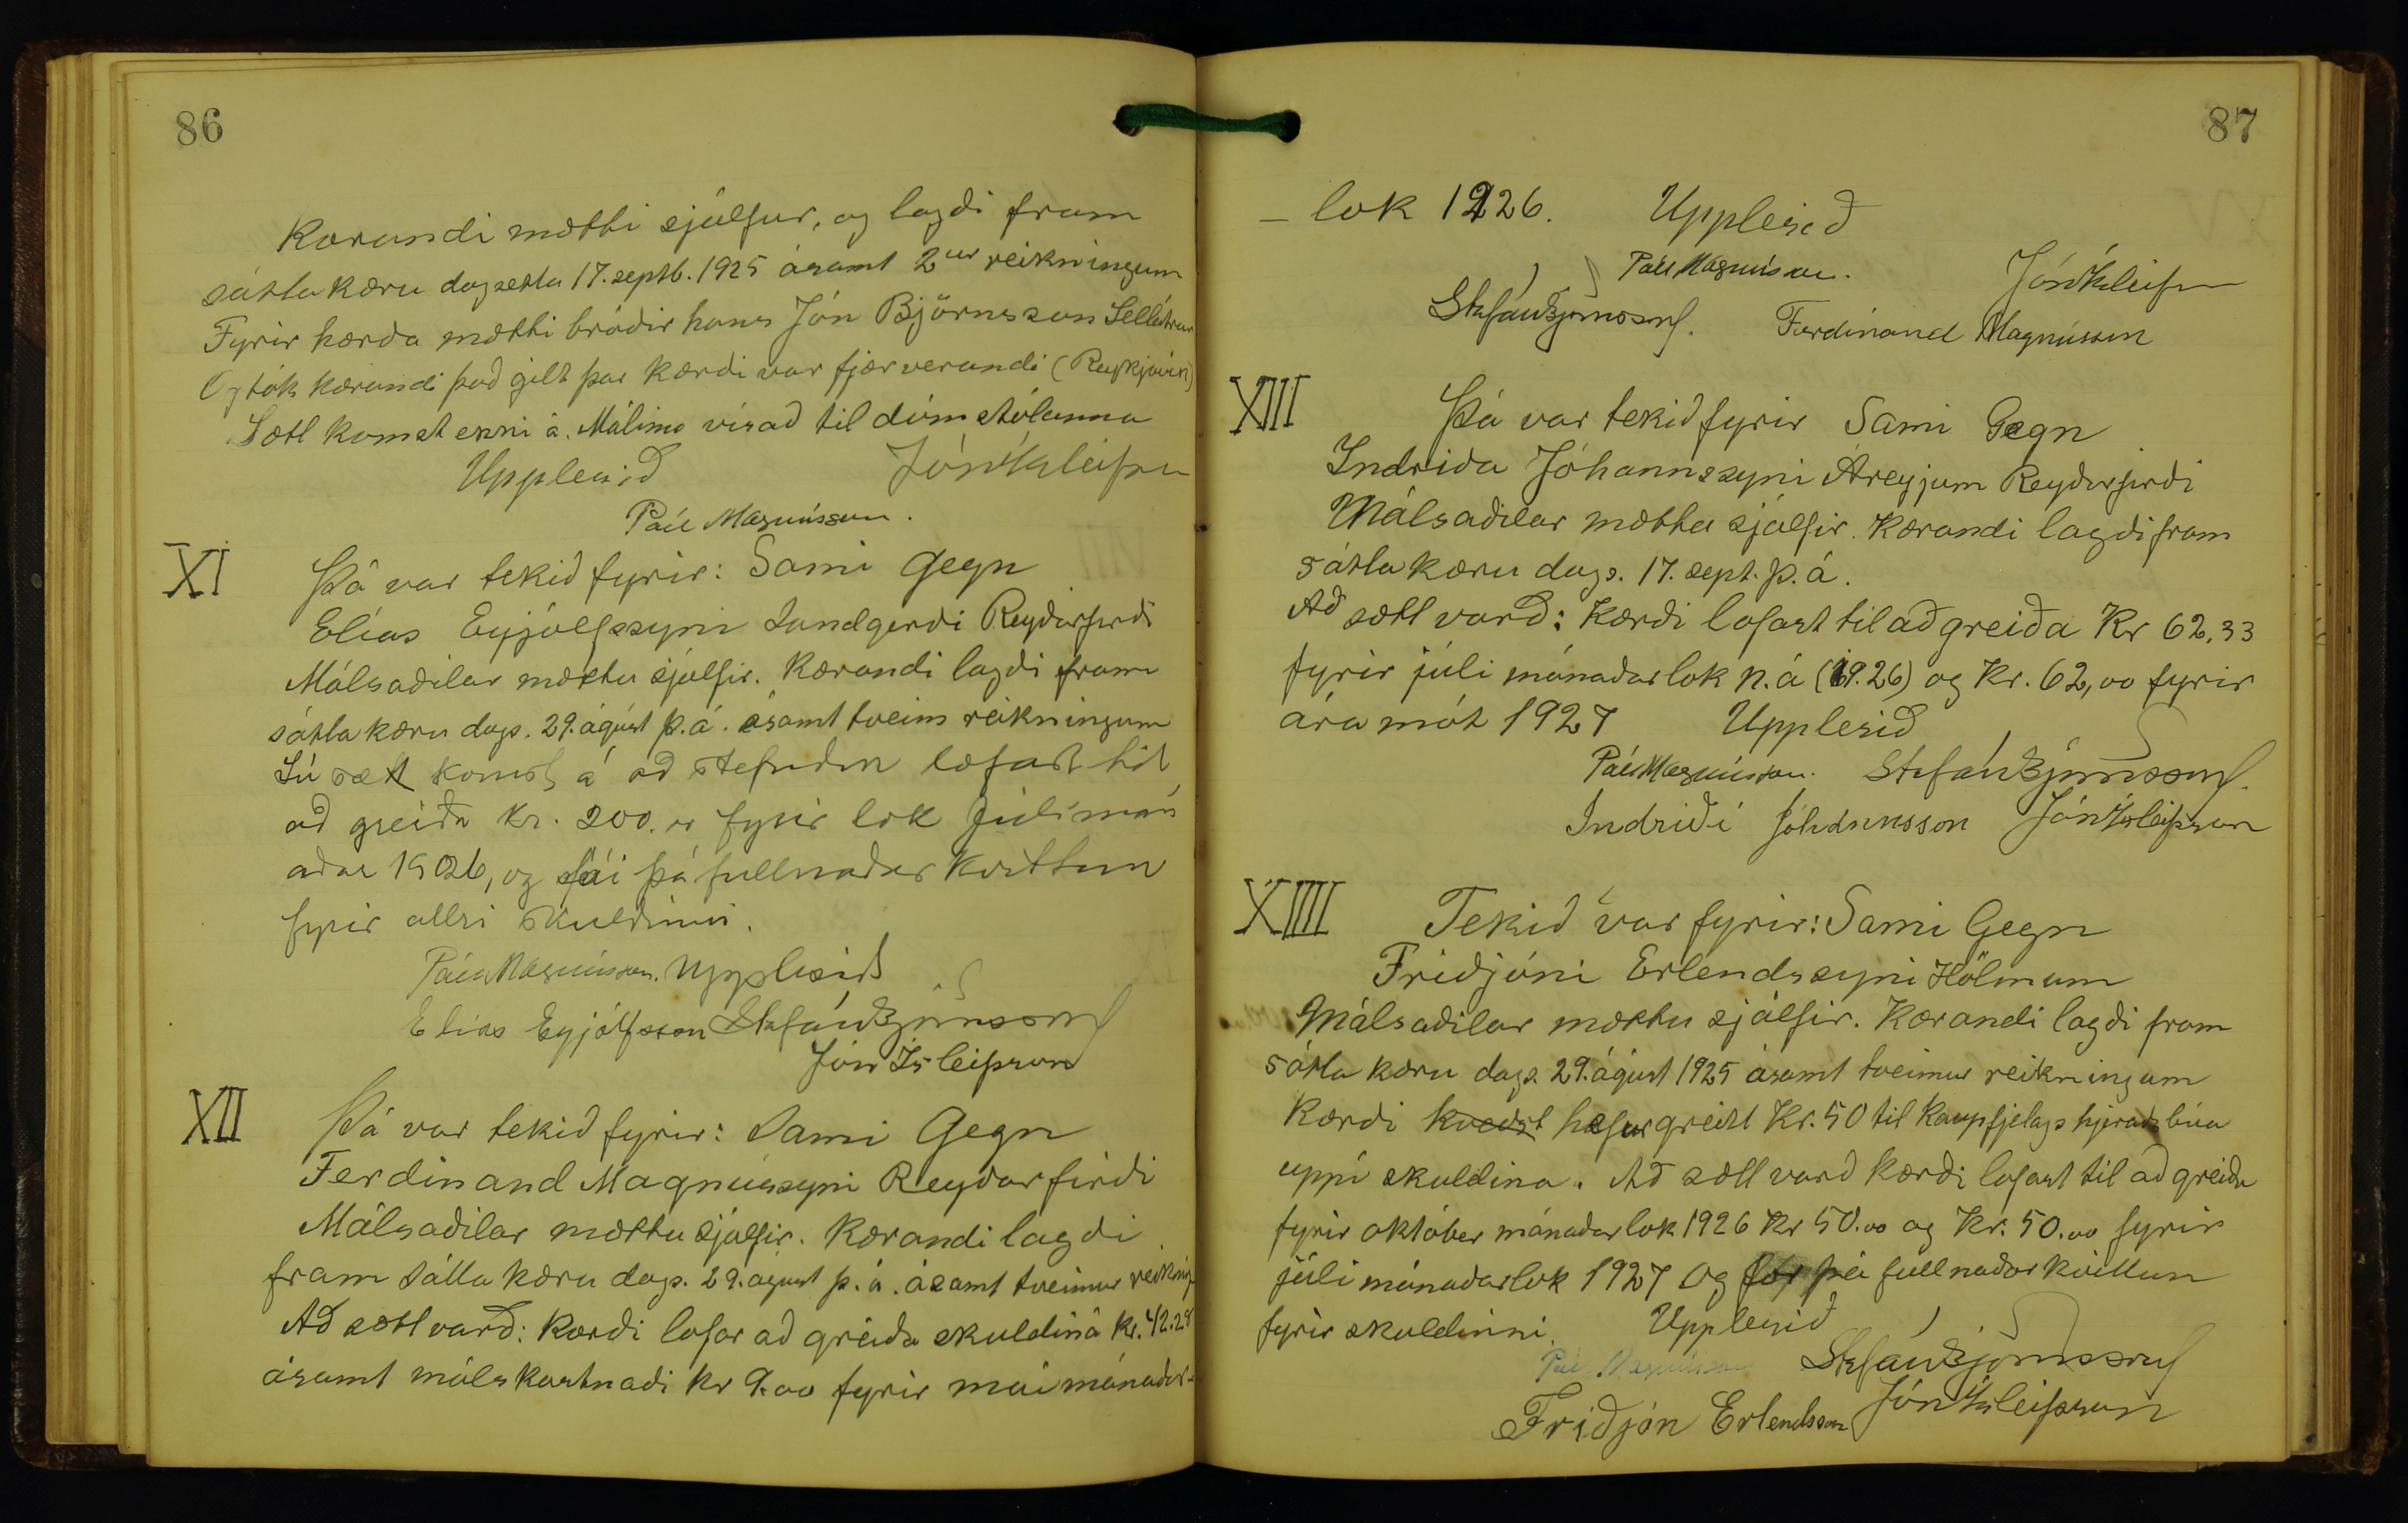 86
Kærandi mætti sjálfur, og lagði fram
sáttakæru dagsetta 17. septb. 1925 ásamt 2ur reikningum
Fyrir kærða mætti bróðir hans Jón Björnsson Selláteum
Og tók kærandi það gilt þar kærði var fjærverandi (Reykjavík)
Sætt komst ekki á. Málinu vísað til dómstólanna
Upplesið Jón Ísleifsson
Páll Magnússon.
XI Þá var tekið fyrir: Sami Gegn
Elías Eyjólfssyni Sandgerði Reyðarfirði
Málsaðilar mættu sjálfir. Kærandi lagði fram
sáttakæru dags. 29. ágúst þ.á. ásamt tveim reikningum
Sú sætt komst á að stefndur lofast til
að greiða kr. 200.00 fyrir lok júlímán
aðar 1926, og fái þá fullnaðar kvittun
fyrir allri skuldinni.
Páll Magnússon. Upplesið
Elías Eyjólfsson Stefán Björnsson
Jón Ísleifsson
XII Þá var tekið fyrir: Sami Gegn
Ferdinand Magnússyni Reyðarfirði
Málsaðilar mættu sjálfir. Kærandi lagði
fram sáttakæru dags. 29. ágúst þ.á. ásamt tveimur reikning
Að sætt varð: Kærði lofar að greiða skuldina kr. 42.28
ásamt málskostnaði kr 9.00 fyrir maímánaðar-
87
- lok 1926. Upplesið
Páll Magnússon. Jón Ísleifsson
Stefán Björnsson. Ferdinand Magnússon
XIII Þá var tekið fyrir Sami Gegn
Indriða Jóhannssyni Áreyjum Reyðarfirði
Málsaðilar mættu sjálfir. Kærandi lagði fram
sáttakæru dags. 17. sept. þ.á.
Að sætt varð: Kærði lofast til að greiða Kr 62,33
fyrir júlí mánaðarlok n.á (19.26) og Kr. 62,00 fyrir
áramót 1927 Upplesið
Páll Magnússon. Stefán Björnsson.
Indriði Jóhannsson Jón Ísleifsson
XIIII Tekið var fyrir: Sami Gegn
Friðjóni Erlendssyni Hólmum
Málsaðilar mættu sjálfir. Kærandi lagði fram
sáttakæru dags. 29. ágúst 1925 ásamt tveimur reikningum
Kærði kveðst hefur greitt Kr. 50 til Kaupfjelags hjeraðsbúa
uppí skuldina. Að sætt varð kærði lofast til að greiða
fyrir október mánaðarlok 1926 Kr 50.00 og Kr. 50.00 fyrir
júlí mánaðarlok 1927 og fær þá fullnaðarkvittun
fyrir skuldinni. Upplesið
Páll Magnússon Stefán Björnsson
Friðjón Erlendsson Jón Ísleifsson